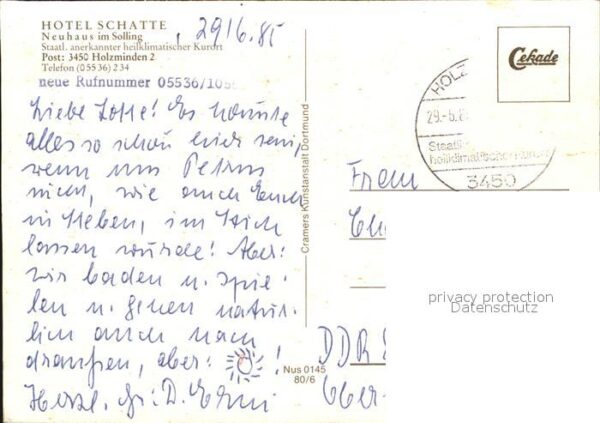 HOTEL SCHATTE
Neuhaus im Solling
Staatl. anerkannter heilklimatischer Kurort
Post: 3450 Holzminden 2
Telefon (05536) 234
neue Rufnummer 05536/105
29/6.85
Liebe Lotte! Es könnte
alles so schön sein,
wenn uns Petrus
nicht, wie auch Euch
in Stich
lassen würde! Aber:
wir baden u. spie-
len u. gehen natür-
lich auch nach
draußen, aber: !
Herzl. Gr: D. Erni
Cramers Kunstanstalt Dortmund
Nus 0145
80/6
Cekade
HOLZ
29.-5.8
Staatl.
heilklimatischer Kurort
3450
Frau
DDR
Ober-
privacy protection
Datenschutz